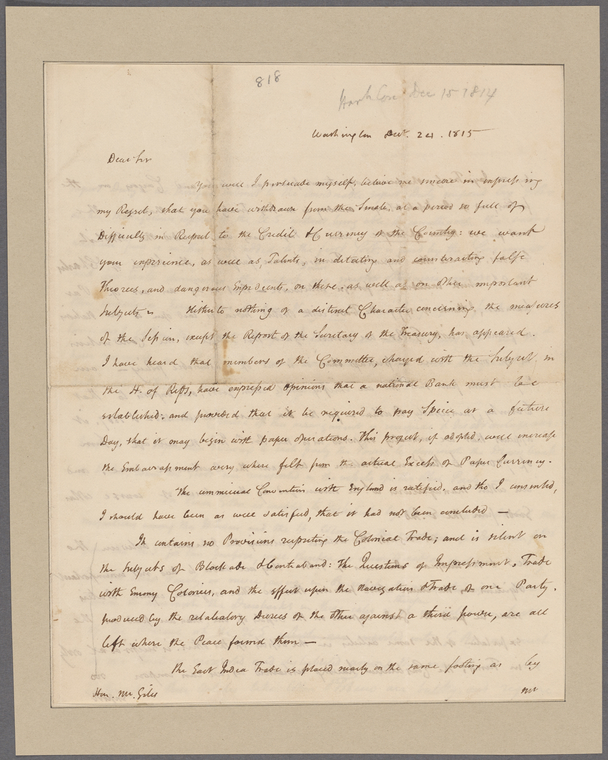 818
Dec 15 1814
Washington Decr. 24. 1815
Dear Sir
You will I persuade myself, believe me sincere in expressing
my Regret, that you have withdrawn from the Senate, at a period so full of
Difficulty in Respect to the Credit & Currency of the Country: we want
your experience, as well as Talents, in detecting and counteracting false
Theories, and dangerous Expedients, on these, as well as on other important
Subjects. Hitherto nothing of a distinct Character concerning the measures
of the Session, except the Report of the Secretary of the Treasury, has appeared.
I have heard that members of the Committee, charged with the Subject in
the H. of Reps, have expressed opinions that a national Bank must be
established: and provided that it be required to pay Specie at a future
Day, that it may begin with paper operations. This project, if adopted, will increase
the Embarrassment every where felt from the actual Excess of Paper Currency.
The commercial Convention with England is ratified. and tho' I consented,
I should have been as well satisfied, that it had not been concluded —
It contains no Provisions respecting the Colonial Trade; and is silent on
the Subjects of Blockade & Contraband: The Questions of Impressment, Trade
with Enemy Colonies, and the effect upon the Navigation & Trade of one Party,
produced by the retaliatory Decrees of the other against a third power, are all
left where the Peace found them —
The East India Trade is placed nearly on the same footing as by
Hon. Mr. Giles